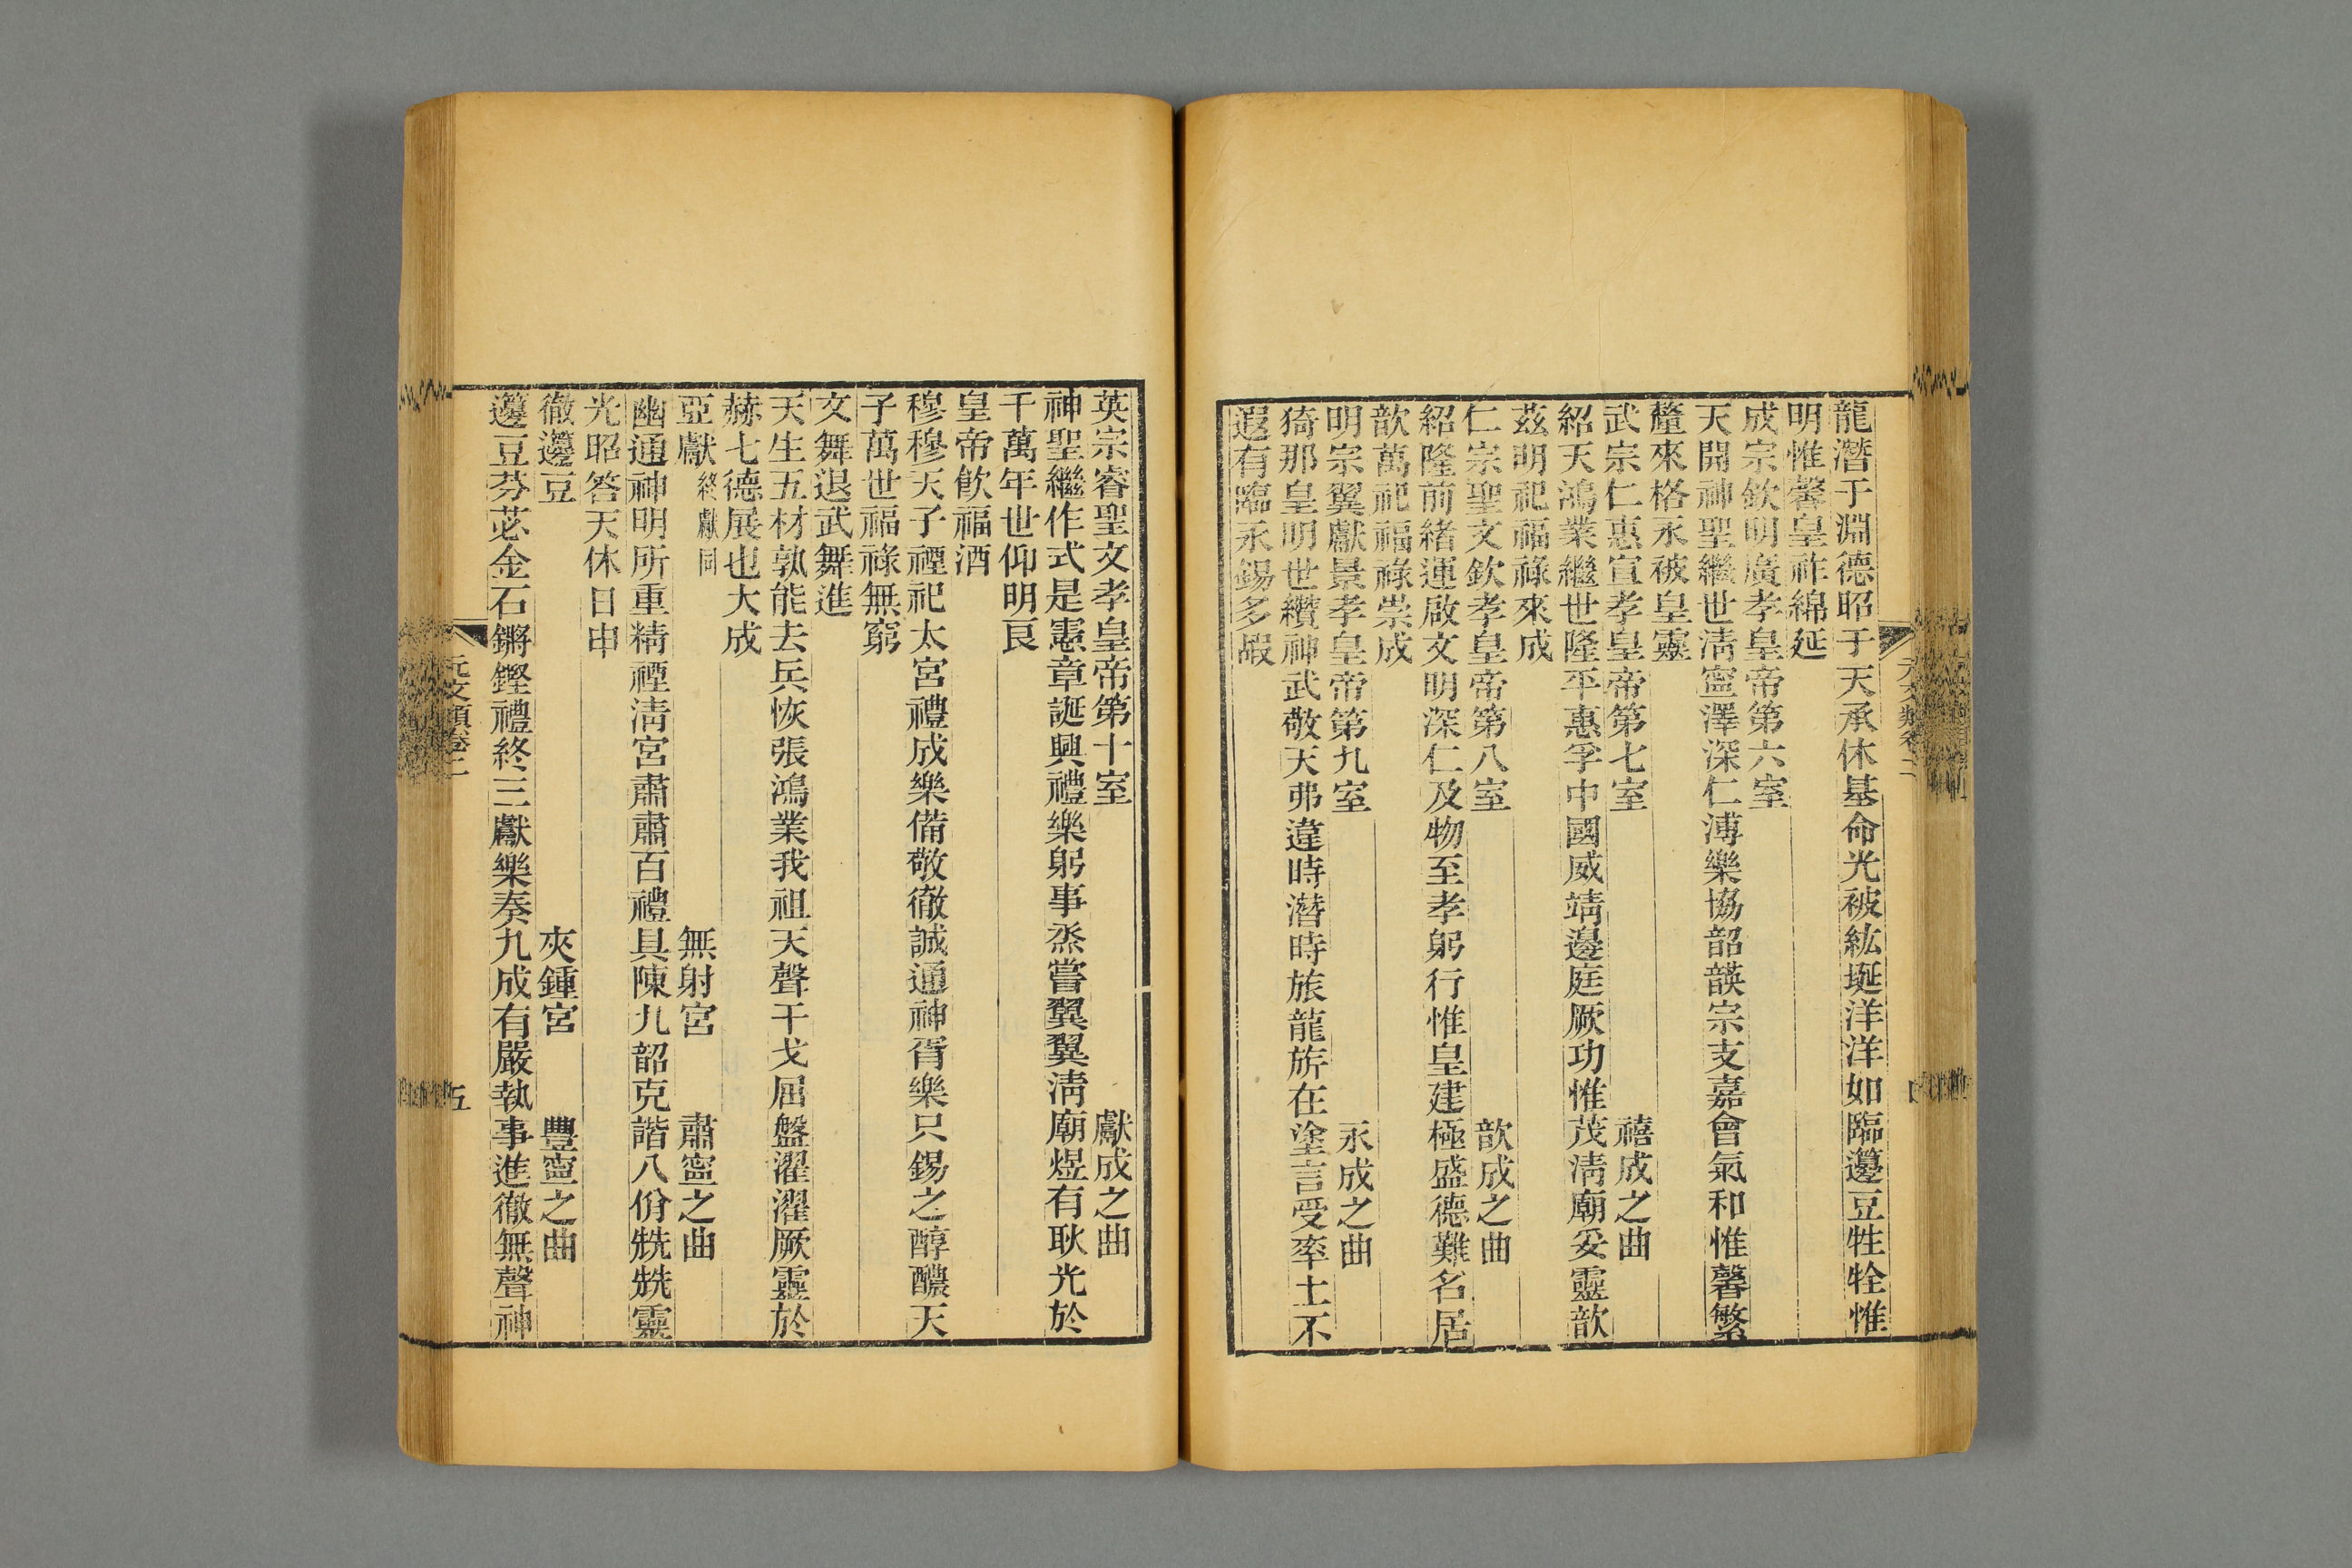 龍潛于淵德昭于天承休基命光被紘埏洋洋如臨籩豆牲牷惟
明惟馨皇祚綿延
成宗欽明廣孝皇帝第六室
天開神聖繼世淸寧澤深仁溥樂協韶韺宗支嘉會氣和惟馨繁
釐來格永被皇靈
武宗仁惠宣孝皇帝第七室 禧成之曲
紹天鴻業繼世隆平惠孚中國威靖邊庭厥功惟茂淸廟妥靈歆
茲明祀福祿來成
仁宗聖文欽孝皇帝第八室 歆成之曲
紹隆前緒運啟文明深仁及物至孝躬行惟皇建極盛德難名居
歆萬祀福祿崇成
明宗翼獻景孝皇帝第九室 永成之曲
猗那皇明世纘神武敬天弗違時潛時旅龍旂在塗言受率土不
遐有臨永錫多嘏
英宗睿聖文孝皇帝第十室 獻成之曲
神聖繼作式是憲章誕興禮樂躬事烝嘗翼翼淸廟煜有耿光於
千萬年世仰明良
皇帝飮福酒
穆穆天子禋祀太宮禮成樂備敬徹誠通神胥樂只錫之醇醲天
子萬世福祿無窮
文舞退武舞進
天生五材孰能去兵恢張鴻業我祖天聲干戈屈盤濯濯厥靈於
赫七德展也大成
亞獻 終獻同 無射宮 肅寧之曲
幽通神明所重精禋淸宮肅肅百禮具陳九韶克諧八佾兟兟靈
光昭答天休日申
徹籩豆 夾鍾宮 豐寧之曲
籩豆芬苾金石鏘鏗禮終三獻樂奏九成有嚴執事進徹無聲神
元文類卷二
五